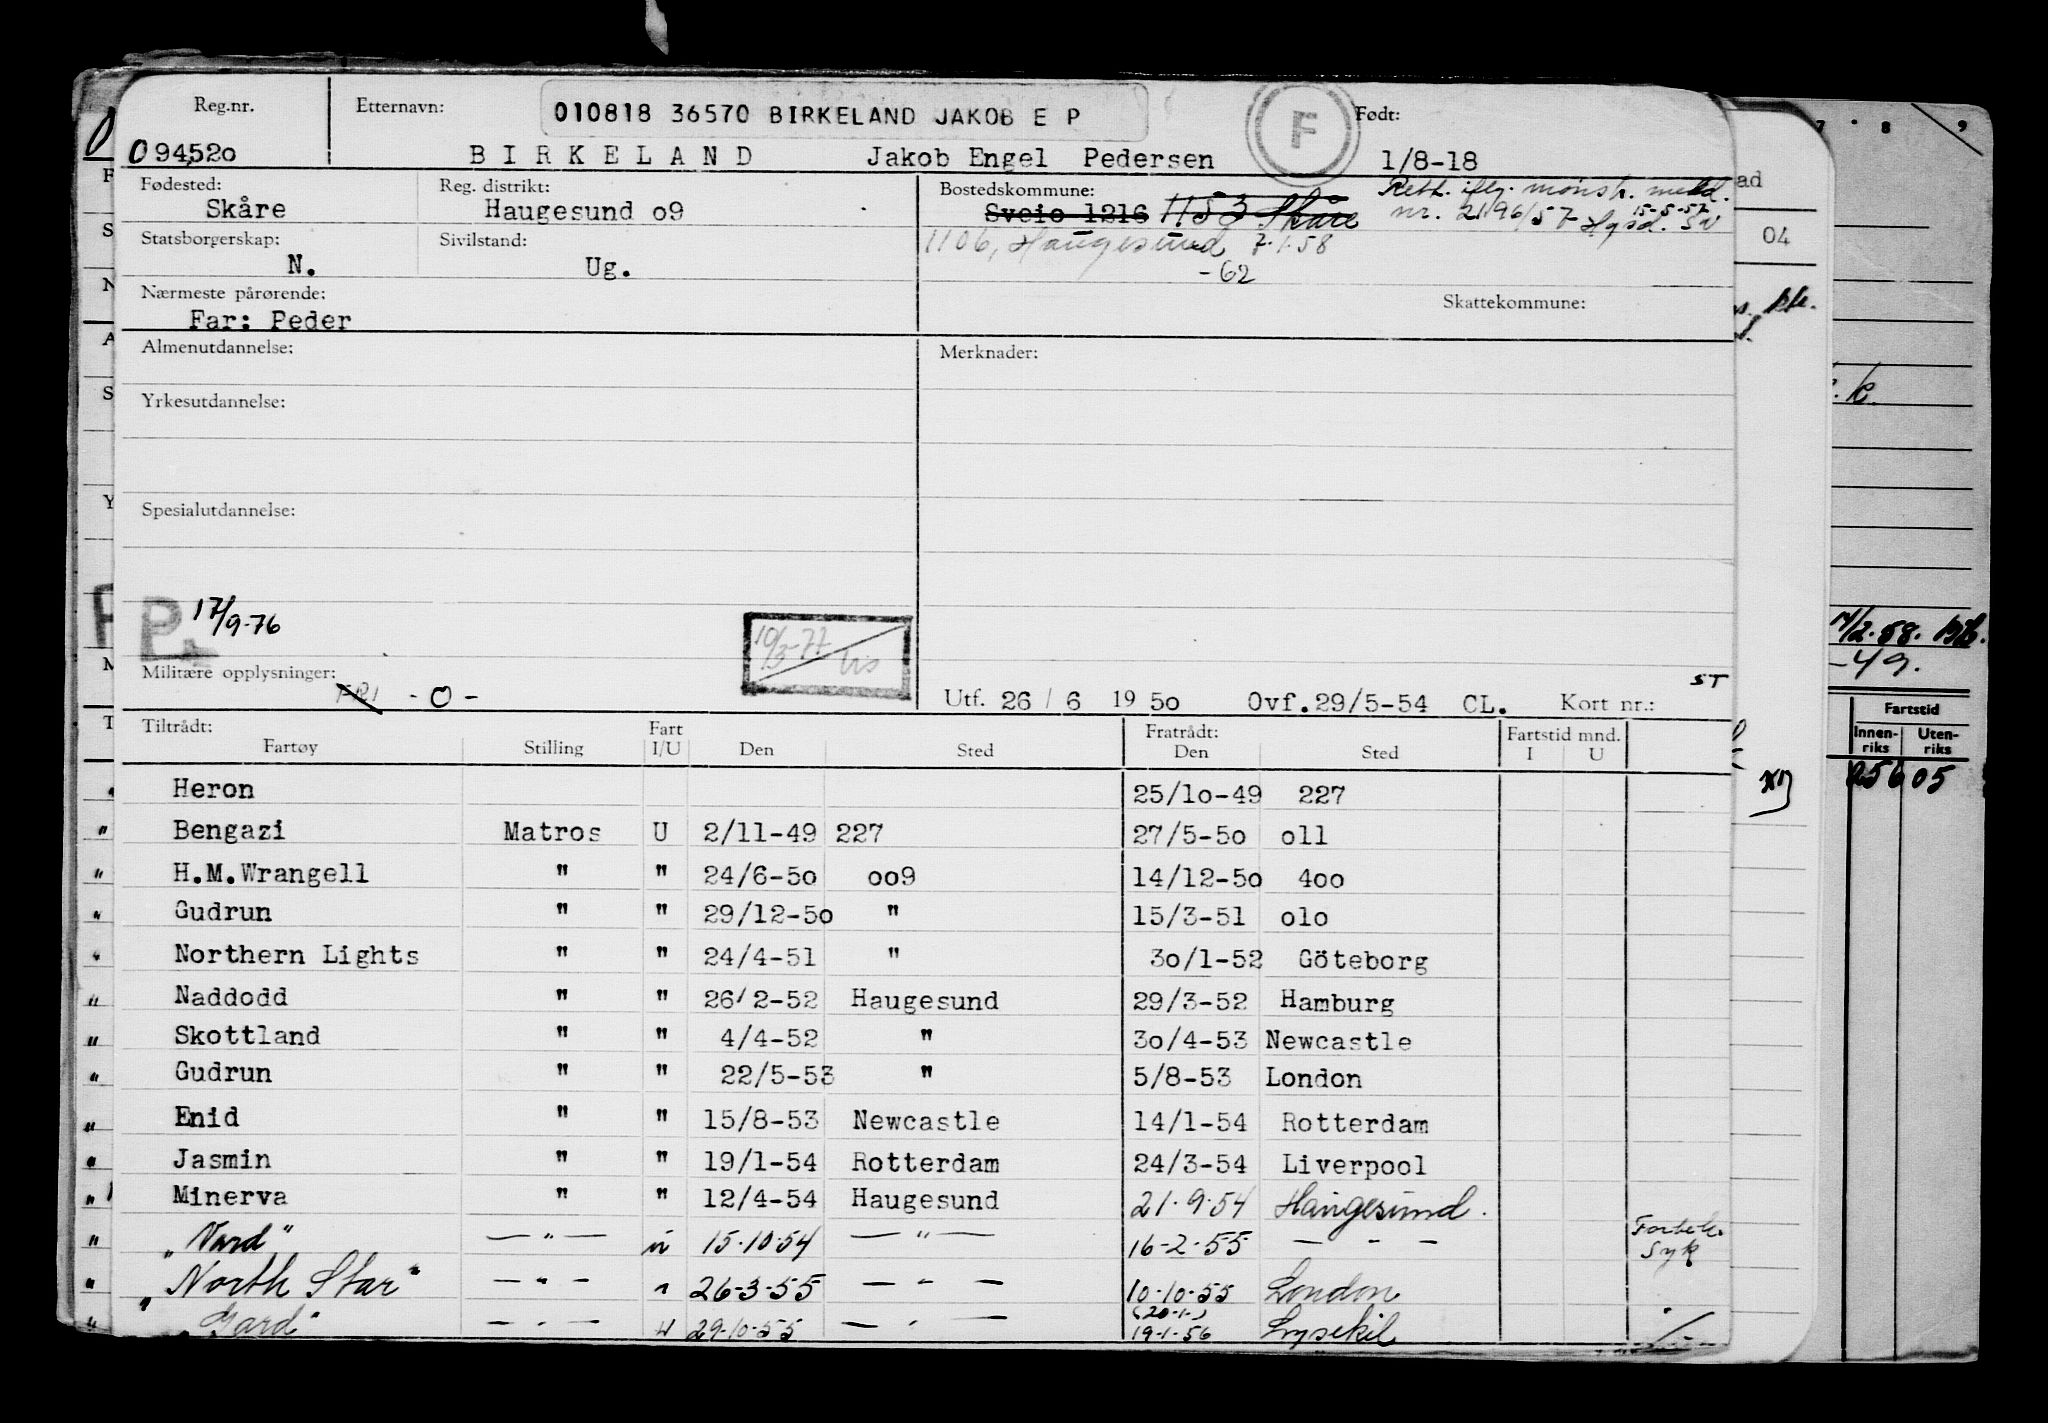 Reg.nr. Etternavn: 010818 36570 BIRKELAND JAKOB E P F Født:
094520 BIRKELAND Jakob Engel Pedersen 1/8-18
Fødested: Reg. distrikt: Bostedskommune: Rett. iflg. mønstr. meld.
Skåre Haugesund o9 Sveio 1216 1153 Skåre nr. 2196/57 Hgsd. 15-5-57 SW
Statsborgerskap: Sivilstand: 1106, Haugesund 7.1.58
N. Ug. -62
Nærmeste pårørende: Skattekommune:
Far: Peder
Almenutdannelse: Merknader:
Yrkesutdannelse:
Spesialutdannelse:
P+ 17/9-76
10/3-77
Militære opplysninger:
FRI -O- Utf. 26/6 1950 Ovf.29/5-54 CL. Kort nr.: ST
Tiltrådt: Fart Fratrådt: Fartstid mnd.
Fartøy Stilling I/U Den Sted Den Sted I U
Heron 25/lo-49 227
Bengazi Matros U 2/11-49 227 27/5-5o o11
H.M.Wrangell " " 24/6-5o oo9 14/12-5o 4oo
Gudrun " " 29/12-5o " 15/3-51 olo
Northern Lights " " 24/4-51 " 3o/1-52 Göteborg
Naddodd " " 26/2-52 Haugesund 29/3-52 Hamburg
Skottland " " 4/4-52 " 3o/4-53 Newcastle
Gudrun " " 22/5-53 " 5/8-53 London
Enid " " 15/8-53 Newcastle 14/1-54 Rotterdam
Jasmin " " 19/1-54 Rotterdam 24/3-54 Liverpool
Minerva " " 12/4-54 Haugesund 21.9.54 Haugesund.
"Vard" — " — u 15.10.54 — " — 16-2-55 — - — Syk
"North Star" — " — " 26-3-55 — " — 10-10-55 London
"Gard" — " — u 29-10-55 — " — (20-1-) 19-1-56 Lysekil
7 8 9
ad
04
14/2.58.
-49.
Fartstid
Innen-riks Uten-riks
256 05